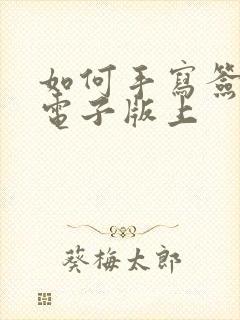 如何手寫簽
電子版上
葵梅太郎